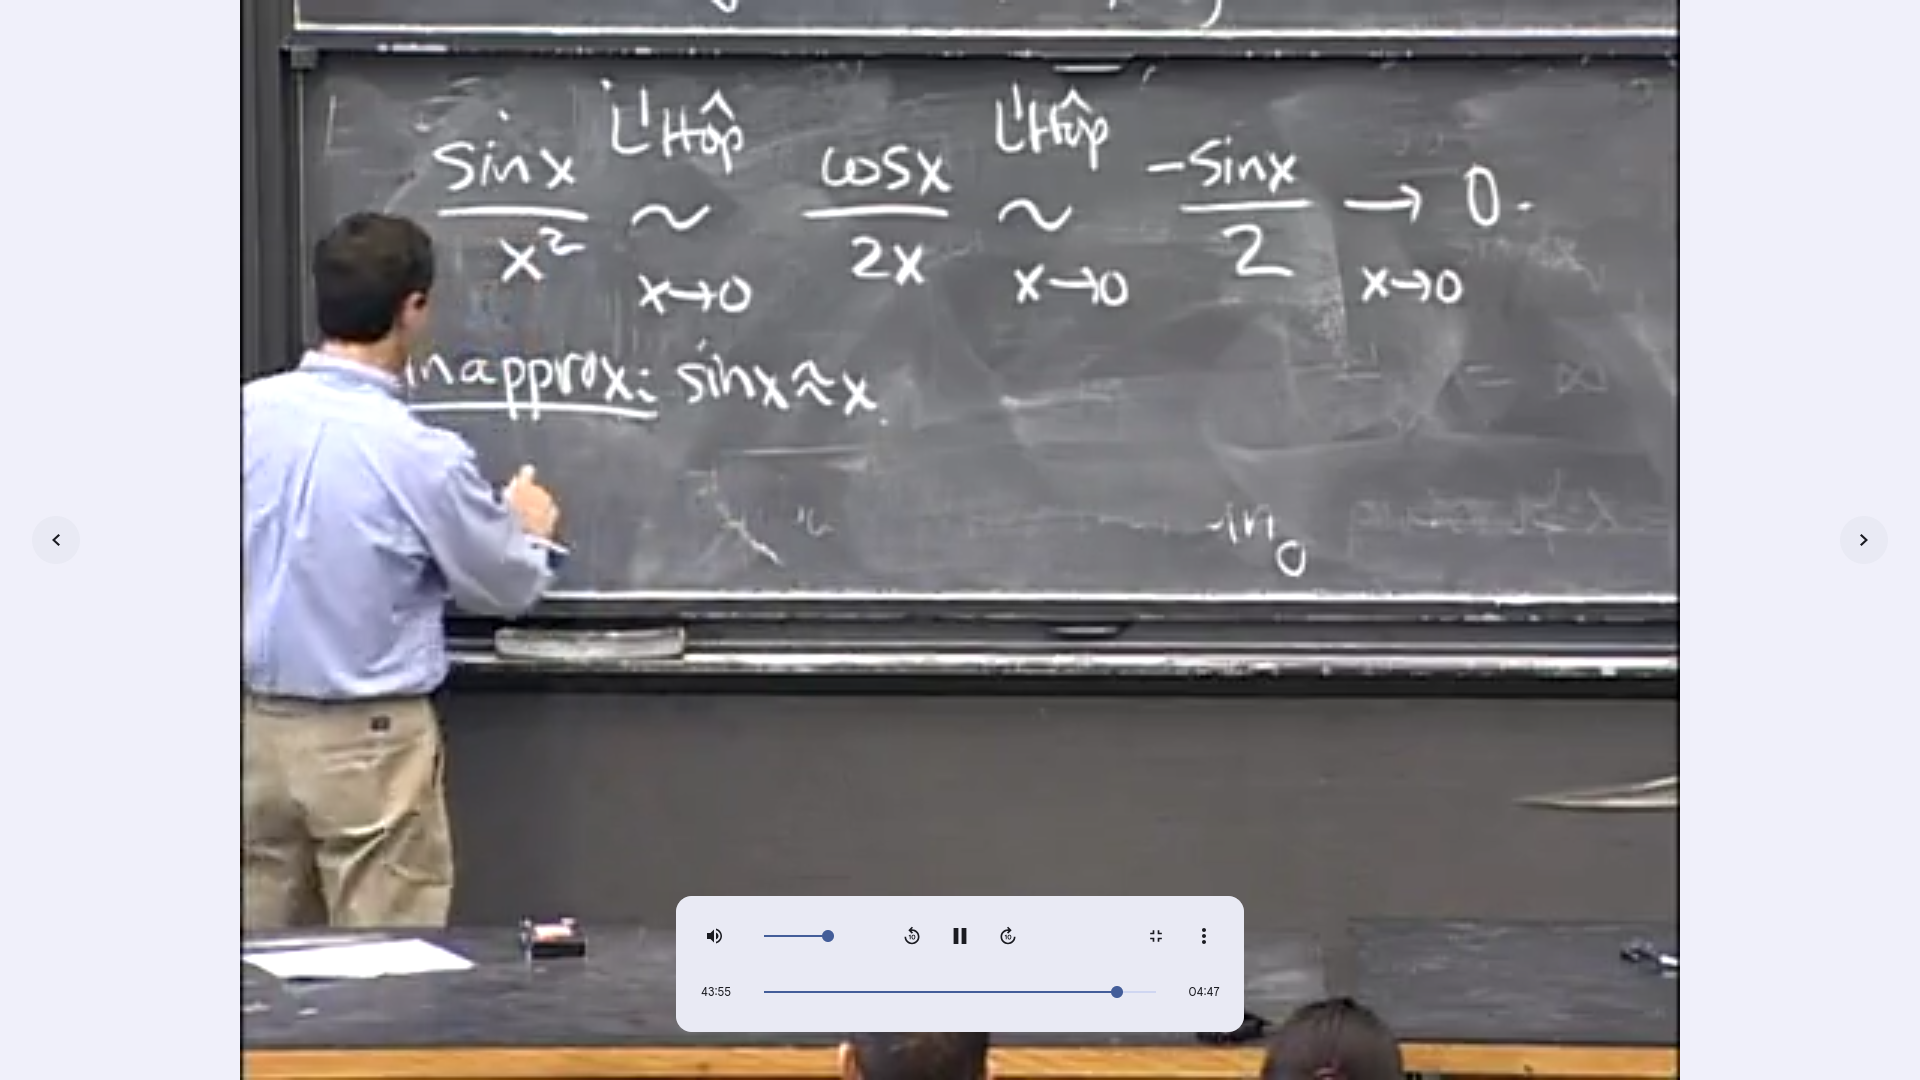 sin x / x² ~ x→0 L'Hôp cos x / 2x ~ x→0 L'Hôp -sin x / 2 → x→0 0.
in approx: sin x ≈ x
43:55
04:47